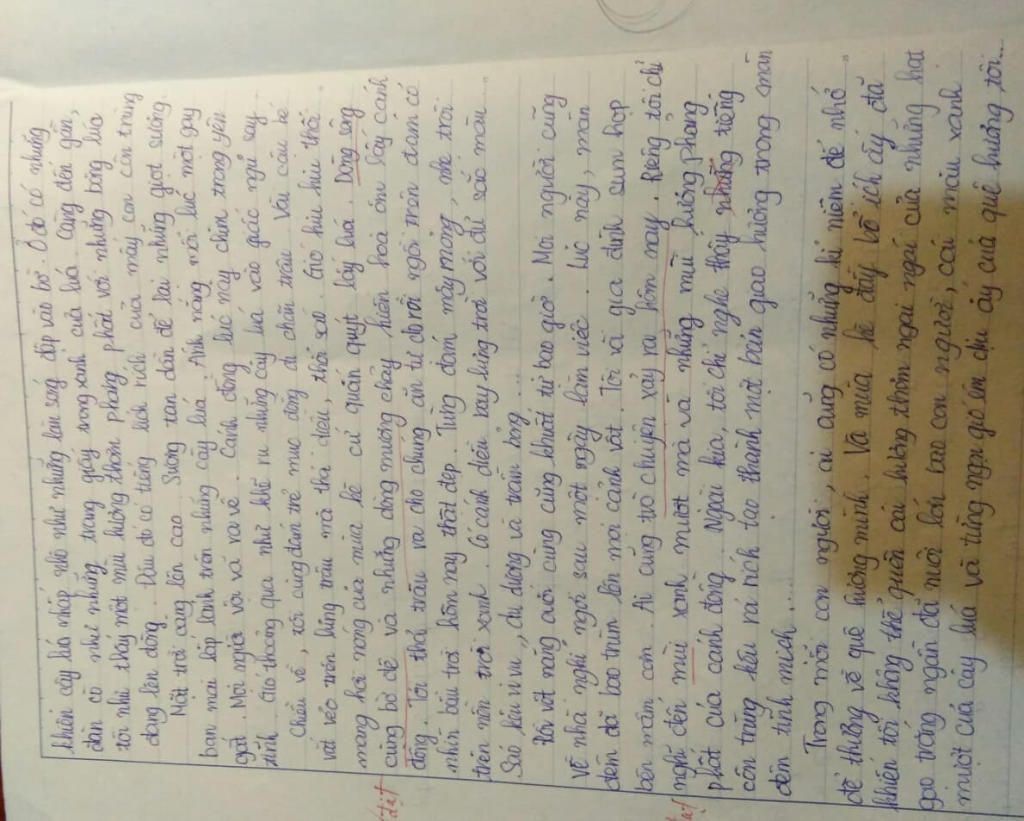 khiến cây lúa nhấp nhô như những làn sóng dập vào bờ. Ở đó có những
đàn cò như những trang giấy song sanh của lúa. Càng đến gần,
tôi như thấy một mùi hương thơm phảng phất với những bông lúa
đang lên đòng. Đâu đó có tiếng rích rích của mấy con côn trùng
Mặt trời càng lên cao. Sương tan dần để lại những giọt sương
ban mai lấp lánh trên những cây lúa. Ánh nắng mỗi lúc một gay
gắt. Mọi người vội vã ra về. Cánh đồng lúc này chìm trong yên
tĩnh. Gió thoảng qua như khẽ ru những cây lúa vào giấc ngủ say.
Chiều về, tôi cùng đám trẻ mục đồng đi chăn trâu. Vài cậu bé
vắt vẻo trên lưng trâu mà thả diều, thổi sáo. Gió hiu hiu thổi
mang hơi nóng của mùa hè cứ quấn quýt lấy lúa. Dòng sông
cùng bờ đê và những dòng mương chảy hiền hoà ôm lấy cánh
đồng. Tôi thả trâu ra cho chúng ăn tự do rồi ngồi trên đám cỏ
nhìn bầu trời hôm nay thật đẹp. Từng đám mây mỏng, nhẹ trôi
trên nền trời xanh. Có cánh diều bay lưng trời với đủ sắc màu...
Sáo kêu vi vu, du dương và trầm bổng...
Rồi vệt nắng cuối cùng cũng khuất từ bao giờ. Mọi người cũng
về nhà nghỉ ngơi sau một ngày làm việc. Lúc này, màn
đêm đã bao trùm lên mọi cảnh vật. Tôi và gia đình sum họp
bên mâm cơm. Ai cũng trò chuyện xảy ra hôm nay. Riêng tôi chỉ
nghĩ đến màu xanh mướt mà và những mùi hương phảng
phất của cánh đồng. Ngoài kia, tôi chỉ nghe thấy những tiếng
côn trùng kêu rả rích tạo thành một bản giao hưởng trong màn
đêm tĩnh mịch.....
Trong mỗi con người, ai cũng có những kỉ niệm để nhớ
để thương về quê hương mình. Và mùa hè đầy bổ ích ấy đã
khiến tôi không thể quên cái hương thơm ngai ngái của những hạt
gạo trắng ngần đã nuôi lớn bao con người, cái màu xanh
mướt của cây lúa và từng ngọn gió êm dịu ấy của quê hương tôi...